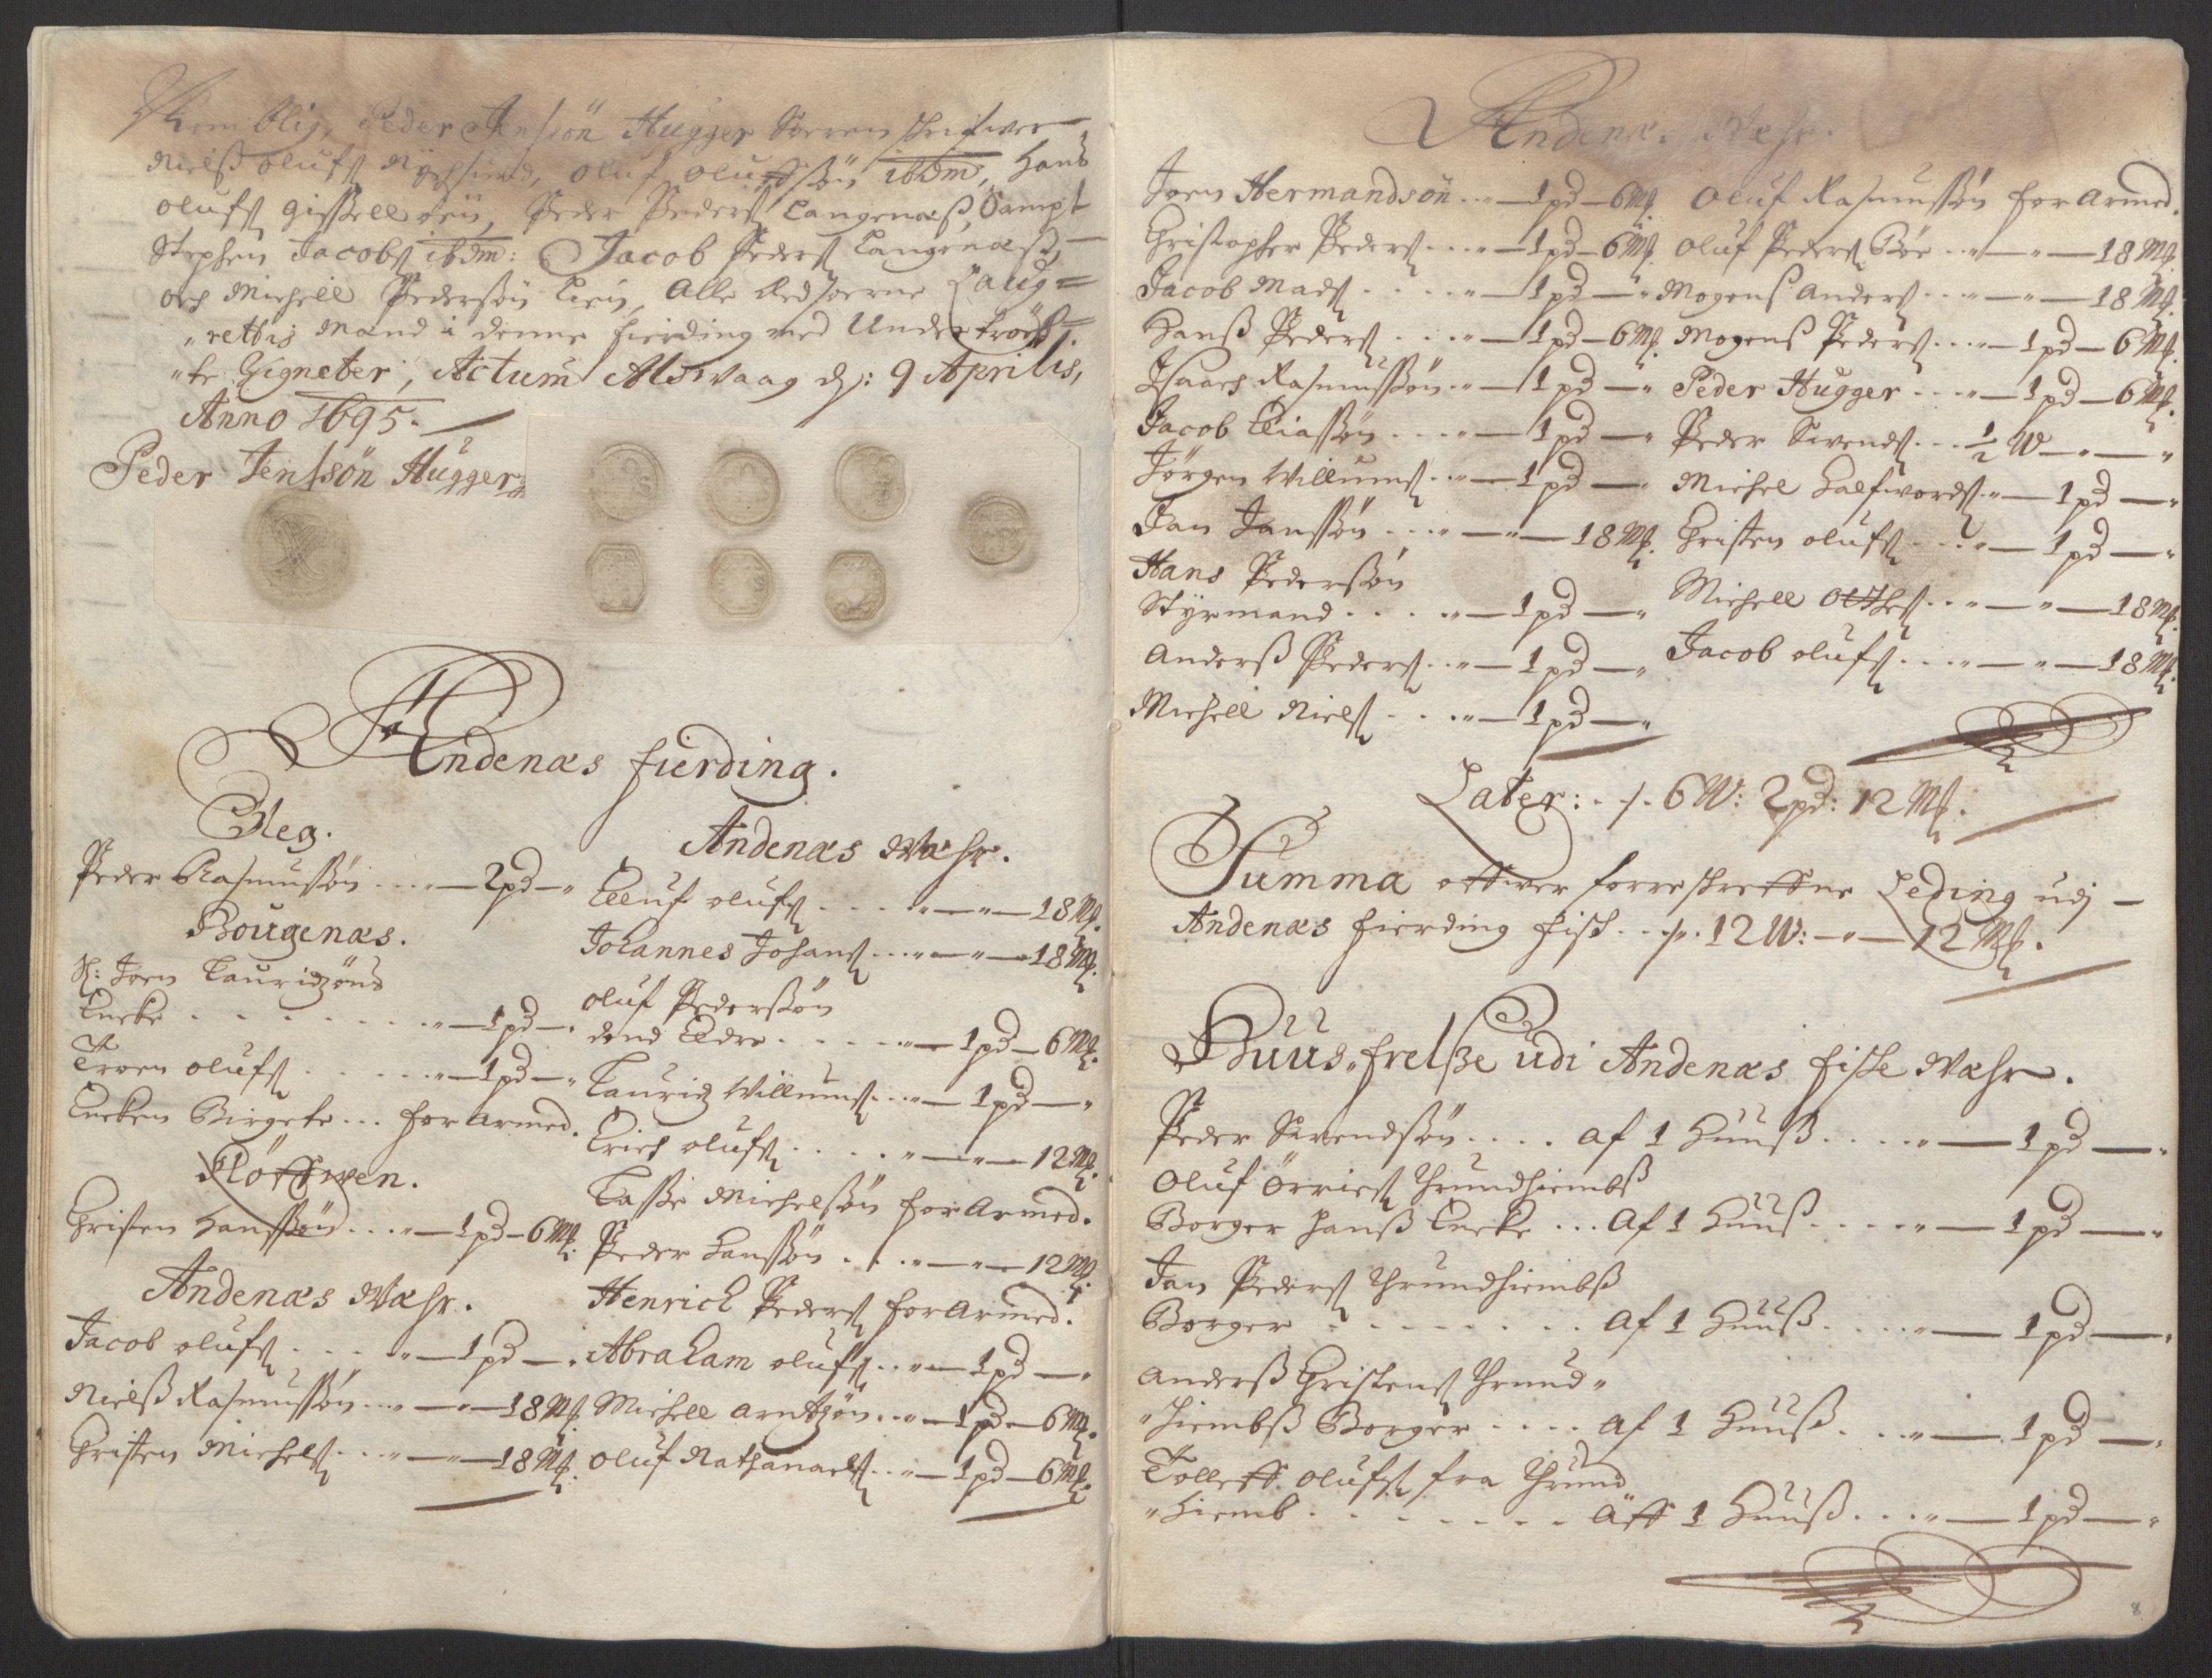 Nemblig, Peder Jenssön Hugger Sorrenschrifwer
Nielß olufs Nychsund, oluf oluffsön ibdm, Hans
olufs Gisselløen, Peder Peders Langenæß, Sampt
Stephen Jacobs ibdm: Jacob Peders Langenæß,
och Michell Pedersön Lien, Alle Edsoerne Laug=
"rettis Mand i denne fierding med Undertröch=
"te Zigneter, Actum Alswaag dj: 9 Aprilis,
Anno 1695.
Peder Jenssön Hugger
Andenæs fierding.
Bleg.
Peder Rasmussön ... " — 2 pd — "
Bougenæs.
H: Joen Lauridzöns
Encke . . . . . " — 1 pd — "
Troen olufs . . . . " — 1 pd — "
Encken Birgete ... for Armed.
Klöffwen.
Christen Hanssön ... " — 1 pd — 6 Mk.
Andenæs Wæhr.
Jacob olufs . . . . " — 1 pd — "
Nielß Rasmussön ... " — " — 18 Mk.
Christen Michels ... " — " — 18 Mk.
Andenæs Wæhr.
Elluf olufs . . . . " — " — 18 Mk.
Johannes Johans ... " — " — 18 Mk.
oluf Pedersön
dend Eldre . . . . . " — 1 pd — 6 Mk.
Lauridz Willums ... " — 1 pd — "
Erich olufs . . . . " — " — 12 Mk.
Lasse Michelsön for Armed.
Peder Hanssön . . . " — " — 12 Mk.
Henrich Peders for Armed.
Abraham olufs ... " — 1 pd — "
Michell Arntzön ... " — 1 pd — 6 Mk.
Oluf Nathanaels ... " — 1 pd — 6 Mk.
Andenæs Wæhr.
Joen Hermandsön ... — 1 pd — 6 Mk.
Christopher Peders ... " — 1 pd — 6 Mk.
Jacob Mads . . . . " — 1 pd — "
Hanß Peders . . . . " — 1 pd — 6 Mk.
Isaach Rasmussön ... " — 1 pd — "
Jacob Eliassön . . . " — 1 pd — "
Jörgen Willums ... " — 1 pd — "
Jan Janssön . . . " — " — 18 Mk.
Hans Pedersön
Styrmand . . . . " — 1 pd — "
Anderß Peders ... " — 1 pd — "
Michell Niels . . . " — 1 pd — "
Oluf Rasmussön for Armed.
Oluf Peders Böe ... " — " — 18 Mk.
Mogenß Anders ... " — " — 18 Mk.
Mogenß Peders ... " — 1 pd — 6 Mk.
Peder Hugger ... " — 1 pd — 6 Mk.
Peder Swends ... ½ W — " — "
Michel Halfwords " — 1 pd — "
Christen olufs ... " — 1 pd — "
Michell Otthes ... " — " — 18 Mk.
Jacob olufs ... " — " — 18 Mk.
Later: . /. 6 W: 2 pd: 12 Mk.
Summa offwer forreschreffne Leding udj
Andenæs fierding fisch . . /. 12 W: — " — 12 Mk.
Huus-frelße udi Andenæs fiske Wæhr.
Peder Swendsön . . . . af 1 Huuß . . . . " — 1 pd — "
Oluf Örries Thrundhiembß
Borger Hanß Encke ... Af 1 Huuß . . . . " — 1 pd — "
Jan Peders Thrundhiembß
Borger . . . . . . . Af 1 Huuß . . . . " — 1 pd — "
Anderß Christens Thrund"
"hiembß Borger . . . . Af 1 Huuß . . . " — 1 pd — "
Tolleff olufs fra Thrund
"hiemb . . . . . . . Aff 1 Huuß . . . " — 1 pd — "
8